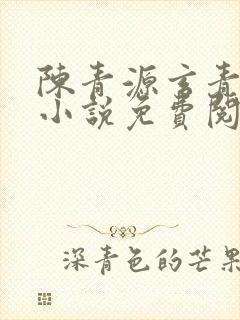 陳青源言青
小說免費閱
深青色的芒果